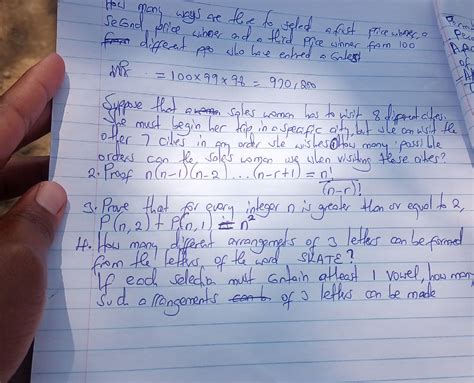 How many ways are there to select a first price winner, a
second price winner and a third price winner from 100
different who have entered a contest
= 100x99x98 = 970,200
Suppose that a sales woman has to visit 8 different cities.
She must begin her trip in a specific city, but she can visit the
other 7 cities in any order she wishes. How many possible
orders can the sales woman use when visiting these cities?
2. Proof n(n-1)(n-2)...(n-r+1) = n!/(n-r)!
3. Prove that for every integer n is greater than or equal to 2,
P(n,2) + P(n,1) = n²
4. How many different arrangements of 3 letters can be formed
from the letters of the word SKATE?
If each selection must contain atleast 1 vowel, how many
such arrangements of 3 letters can be made